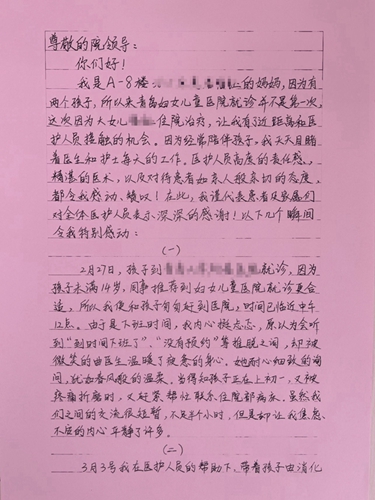 尊敬的院领导：
你们好！
我是A-8楼 的妈妈，因为有
两个孩子，所以来青岛妇女儿童医院就诊并不是第一次，
这次因为大女儿 住院治疗，让我有了近距离和医
护人员接触的机会。因为经常陪伴孩子，我天天目睹
着医生和护士每天的工作。医护人员高度的责任感、
精湛的医术，以及对待患者如亲人般亲切的态度，
都令我感动、赞叹！在此，我谨代表患者及家属们
对全体医护人员表示深深的感谢！以下几个瞬间
令我特别感动：
（一）
2月27日，孩子到 就诊，因为
孩子未满14岁，同事推荐到妇女儿童医院就诊更合
适，所以我便和孩子匆匆赶到医院，时间已临近中午
12点。由于是下班时间，我内心挺忐忑，原以为会听
到“到时间下班了”、“没有预约”等推脱之词，却被
微笑的曲医生温暖了疲惫的身心。她耐心细致的询
问，犹如春风般的温柔。当得知孩子正在上初一，又被
疼痛折磨时，又赶紧帮忙联系住院部病床。虽然我
们之间的交流很短暂，不足半个小时，但是却让我焦虑、
不屈的内心平静了许多。
（二）
3月3号我在医护人员的帮助下，带着孩子由消化